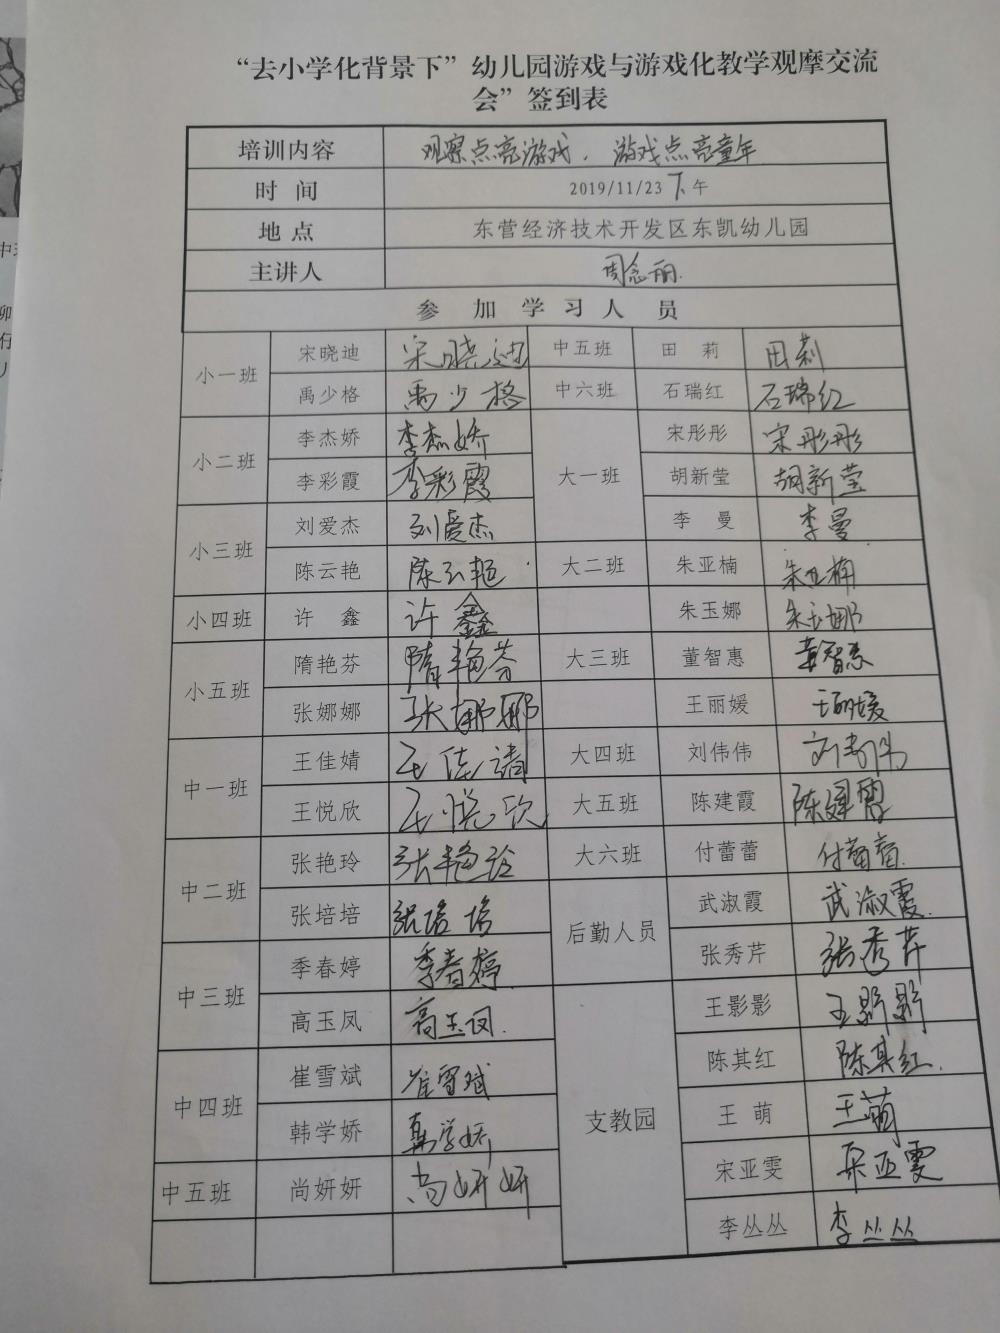 “去小学化背景下”幼儿园游戏与游戏化教学观摩交流
会”签到表
培训内容 观察点亮游戏，游戏点亮童年
时 间 2019/11/23 下午
地 点 东营经济技术开发区东凯幼儿园
主讲人 周念丽
参 加 学 习 人 员
小一班 宋晓迪 宋晓迪 中五班 田 莉 田莉
禹少格 禹少格 中六班 石瑞红 石瑞红
小二班 李杰娇 李杰娇 大一班 宋彤彤 宋彤彤
李彩霞 李彩霞 胡新莹 胡新莹
小三班 刘爱杰 刘爱杰 李 曼 李曼
陈云艳 陈云艳 大二班 朱亚楠 朱亚楠
小四班 许 鑫 许鑫 朱玉娜 朱玉娜
小五班 隋艳芬 隋艳芬 大三班 董智惠 董智惠
张娜娜 张娜娜 王丽媛 王丽媛
中一班 王佳婧 王佳婧 大四班 刘伟伟 刘伟伟
王悦欣 王悦欣 大五班 陈建霞 陈建霞
中二班 张艳玲 张艳玲 大六班 付蕾蕾 付蕾蕾
张培培 张培培 后勤人员 武淑霞 武淑霞
中三班 季春婷 季春婷 张秀芹 张秀芹
高玉凤 高玉凤 支教园 王影影 王影影
中四班 崔雪斌 崔雪斌 陈其红 陈其红
韩学娇 韩学娇 王 萌 王萌
中五班 尚妍妍 尚妍妍 宋亚雯 宋亚雯
李丛丛 李丛丛